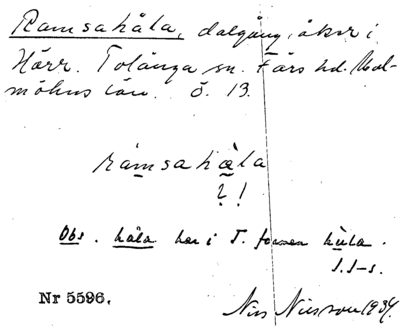 Ramsahåla, dalgång, åker i
Hörr. Tolånga sn. Färs hd. Mal-
möhus län. ö. 13.
ràmsahàla
? !
Obs. håla har i T. formen hùla.
I. I-s.
Nr 5596.
Nils Nilsson 1934.